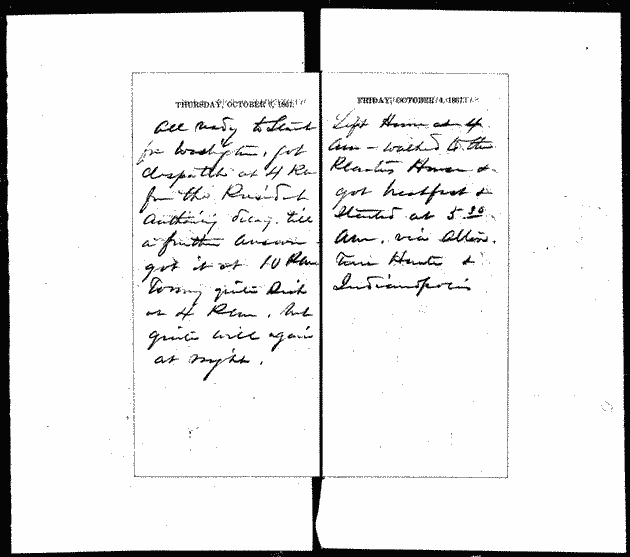 THURSDAY, OCTOBER 3, 1861.
All ready to Start
for Washington, got
despatch at 4 Pm
from the President
authorising delay till
a further answer
got it at 10 Pm
Tommy quite Sick
at 4 Pm, but
quite well again
at night.
FRIDAY, OCTOBER 4, 1861.
Left Home at 4
Am - walked to the
Planters House &
got breakfast &
Started at 5 30
Am, via Alton,
Terre Haute &
Indianapolis